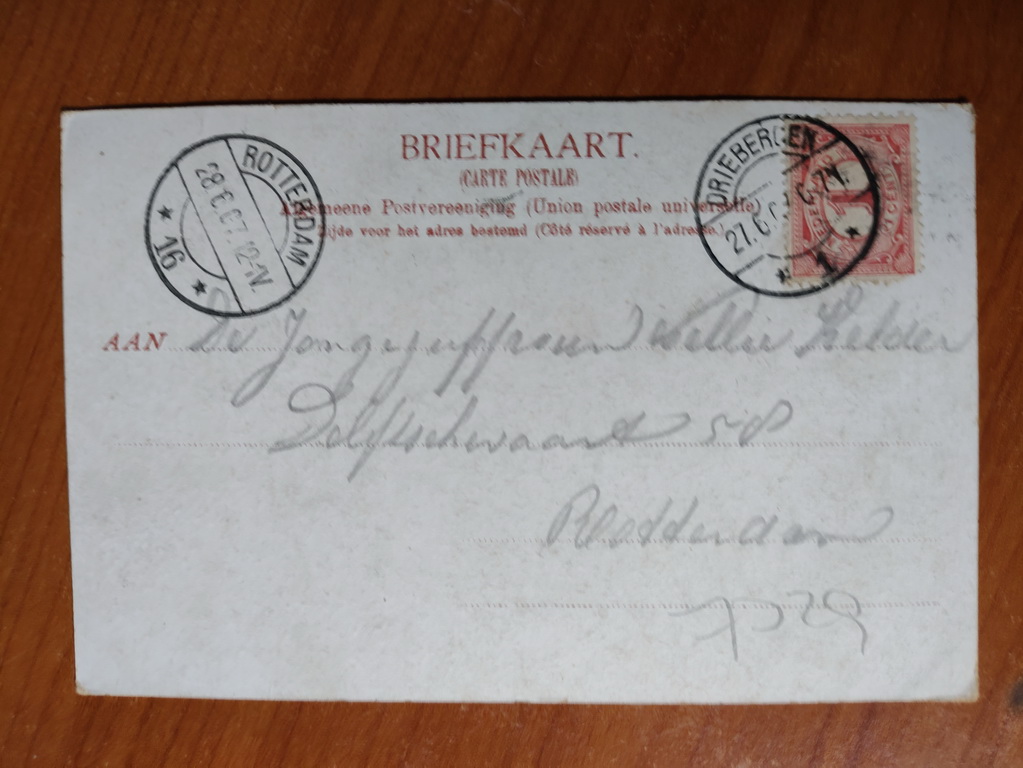 BRIEFKAART.
(CARTE POSTALE)
Algemeene Postvereeniging (Union postale universelle)
Zijde voor het adres bestemd (Côté réservé à l'adresse.)
ROTTERDAM
28.6.07.12-1V.
16
DRIEBERGEN
27.6. 6-7N.
1
1
CENT
AAN De Jongejuffrouw Nellie Helder
Delftschevaart 58
Rotterdam